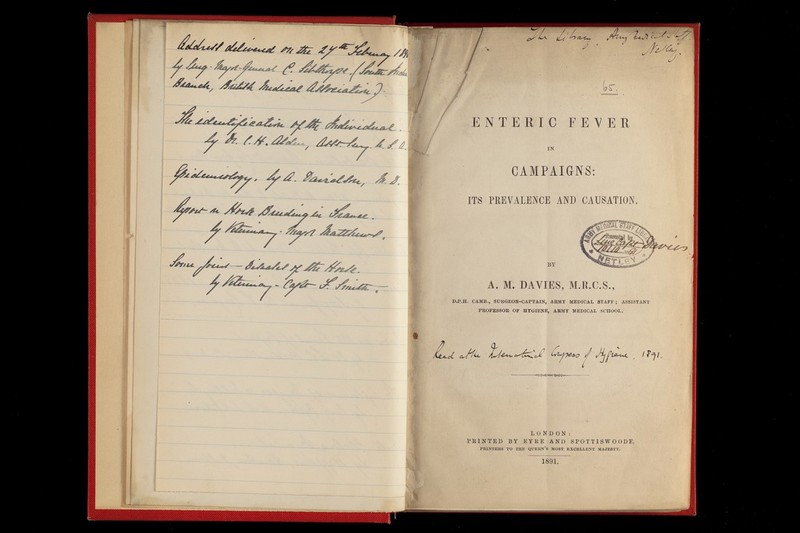 Address delivered on the 27th February 18
by Surg. Major-General C. Sibthorpe (South Indian
Branch, British Medical Association).
The identification of the Individual.
by Dr. C. H. Alden, Asst. Surg. U. S. A.
Epidemiology. by A. Davidson, M. D.
Report on Horse Breeding in France.
by Veterinary-Major Matthews.
Some Joint-Diseases of the Horse.
by Veterinary-Capt. F. Smith.
The Library, Army Medical Staff
Netley
65.
ENTERIC FEVER
IN
CAMPAIGNS:
ITS PREVALENCE AND CAUSATION.
ARMY MEDICAL STAFF
Presented by
Surg. Capt. Davies
NETLEY
BY
A. M. DAVIES, M.R.C.S.,
D.P.H. CAMB., SURGEON-CAPTAIN, ARMY MEDICAL STAFF; ASSISTANT
PROFESSOR OF HYGIENE, ARMY MEDICAL SCHOOL.
Read at the International Congress of Hygiene, 1891.
LONDON:
PRINTED BY EYRE AND SPOTTISWOODE,
PRINTERS TO THE QUEEN'S MOST EXCELLENT MAJESTY.
1891.